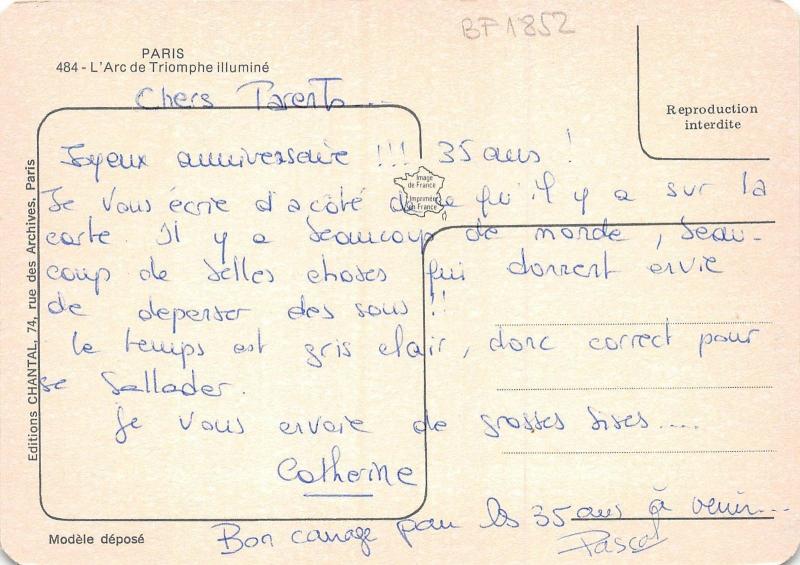 BF1852
PARIS
484 - L'Arc de Triomphe illuminé
Reproduction
interdite
Chers Parents...
Joyeux anniversaire !!! 35 ans !
Image
de France
Imprimée
en France
Je vous écrie d'a côté de ce qu'il y a sur la
carte. Il y a beaucoup de monde, beau-
coup de belles choses qui donnent envie
de depenser des sous !!
Le temps est gris clair, donc correct pour
se ballader.
Je vous envoie de grosses bises.....
Catherine
Bon courage pour les 35 ans à venir...
Pascal
Editions CHANTAL, 74, rue des Archives, Paris
Modèle déposé